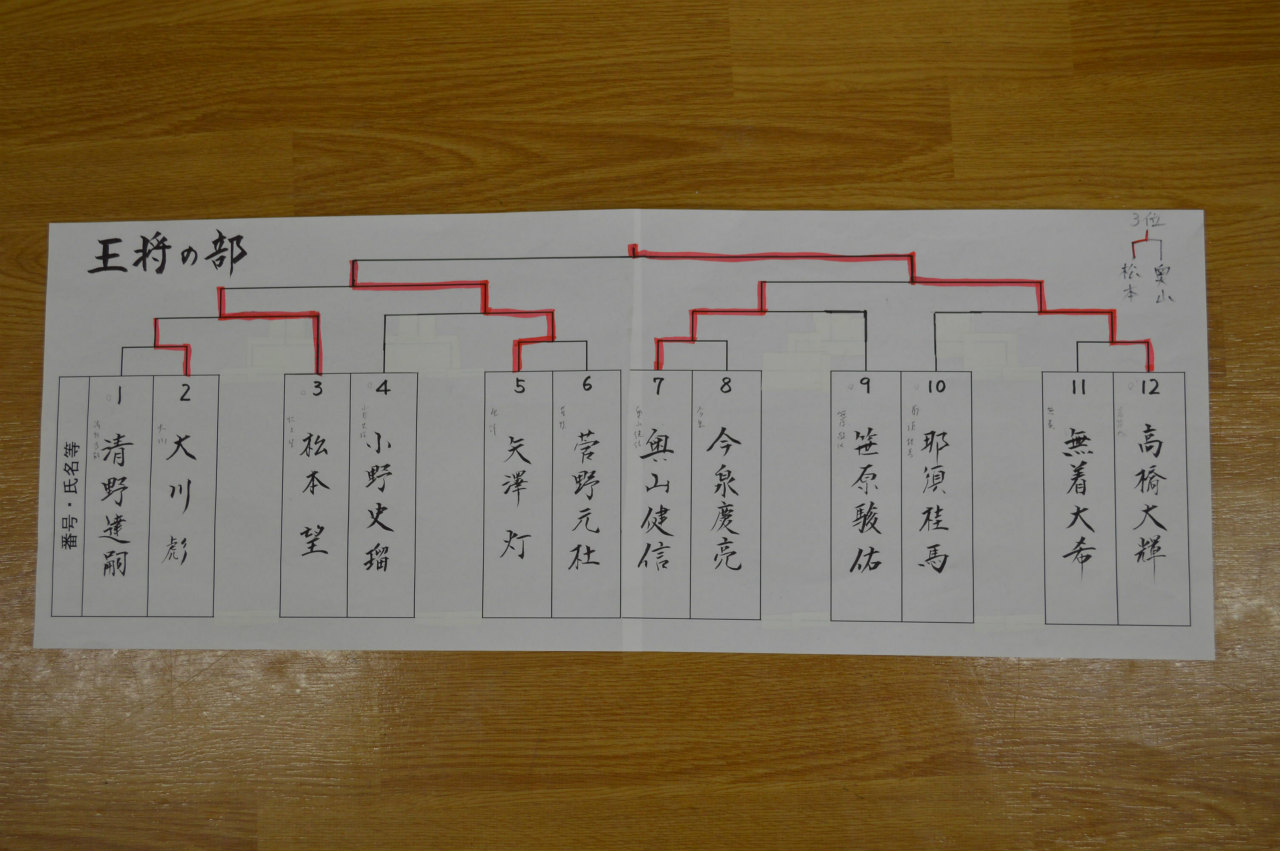 王将の部
3位
松本
奥山
番号・氏名等
1
清野達嗣
2
大川彪
3
松本望
4
小野史瑠
5
矢澤灯
6
菅野元杜
7
奥山健信
8
今泉慶亮
9
笹原駿佑
10
耶須桂馬
11
無着大希
12
高橋大輝